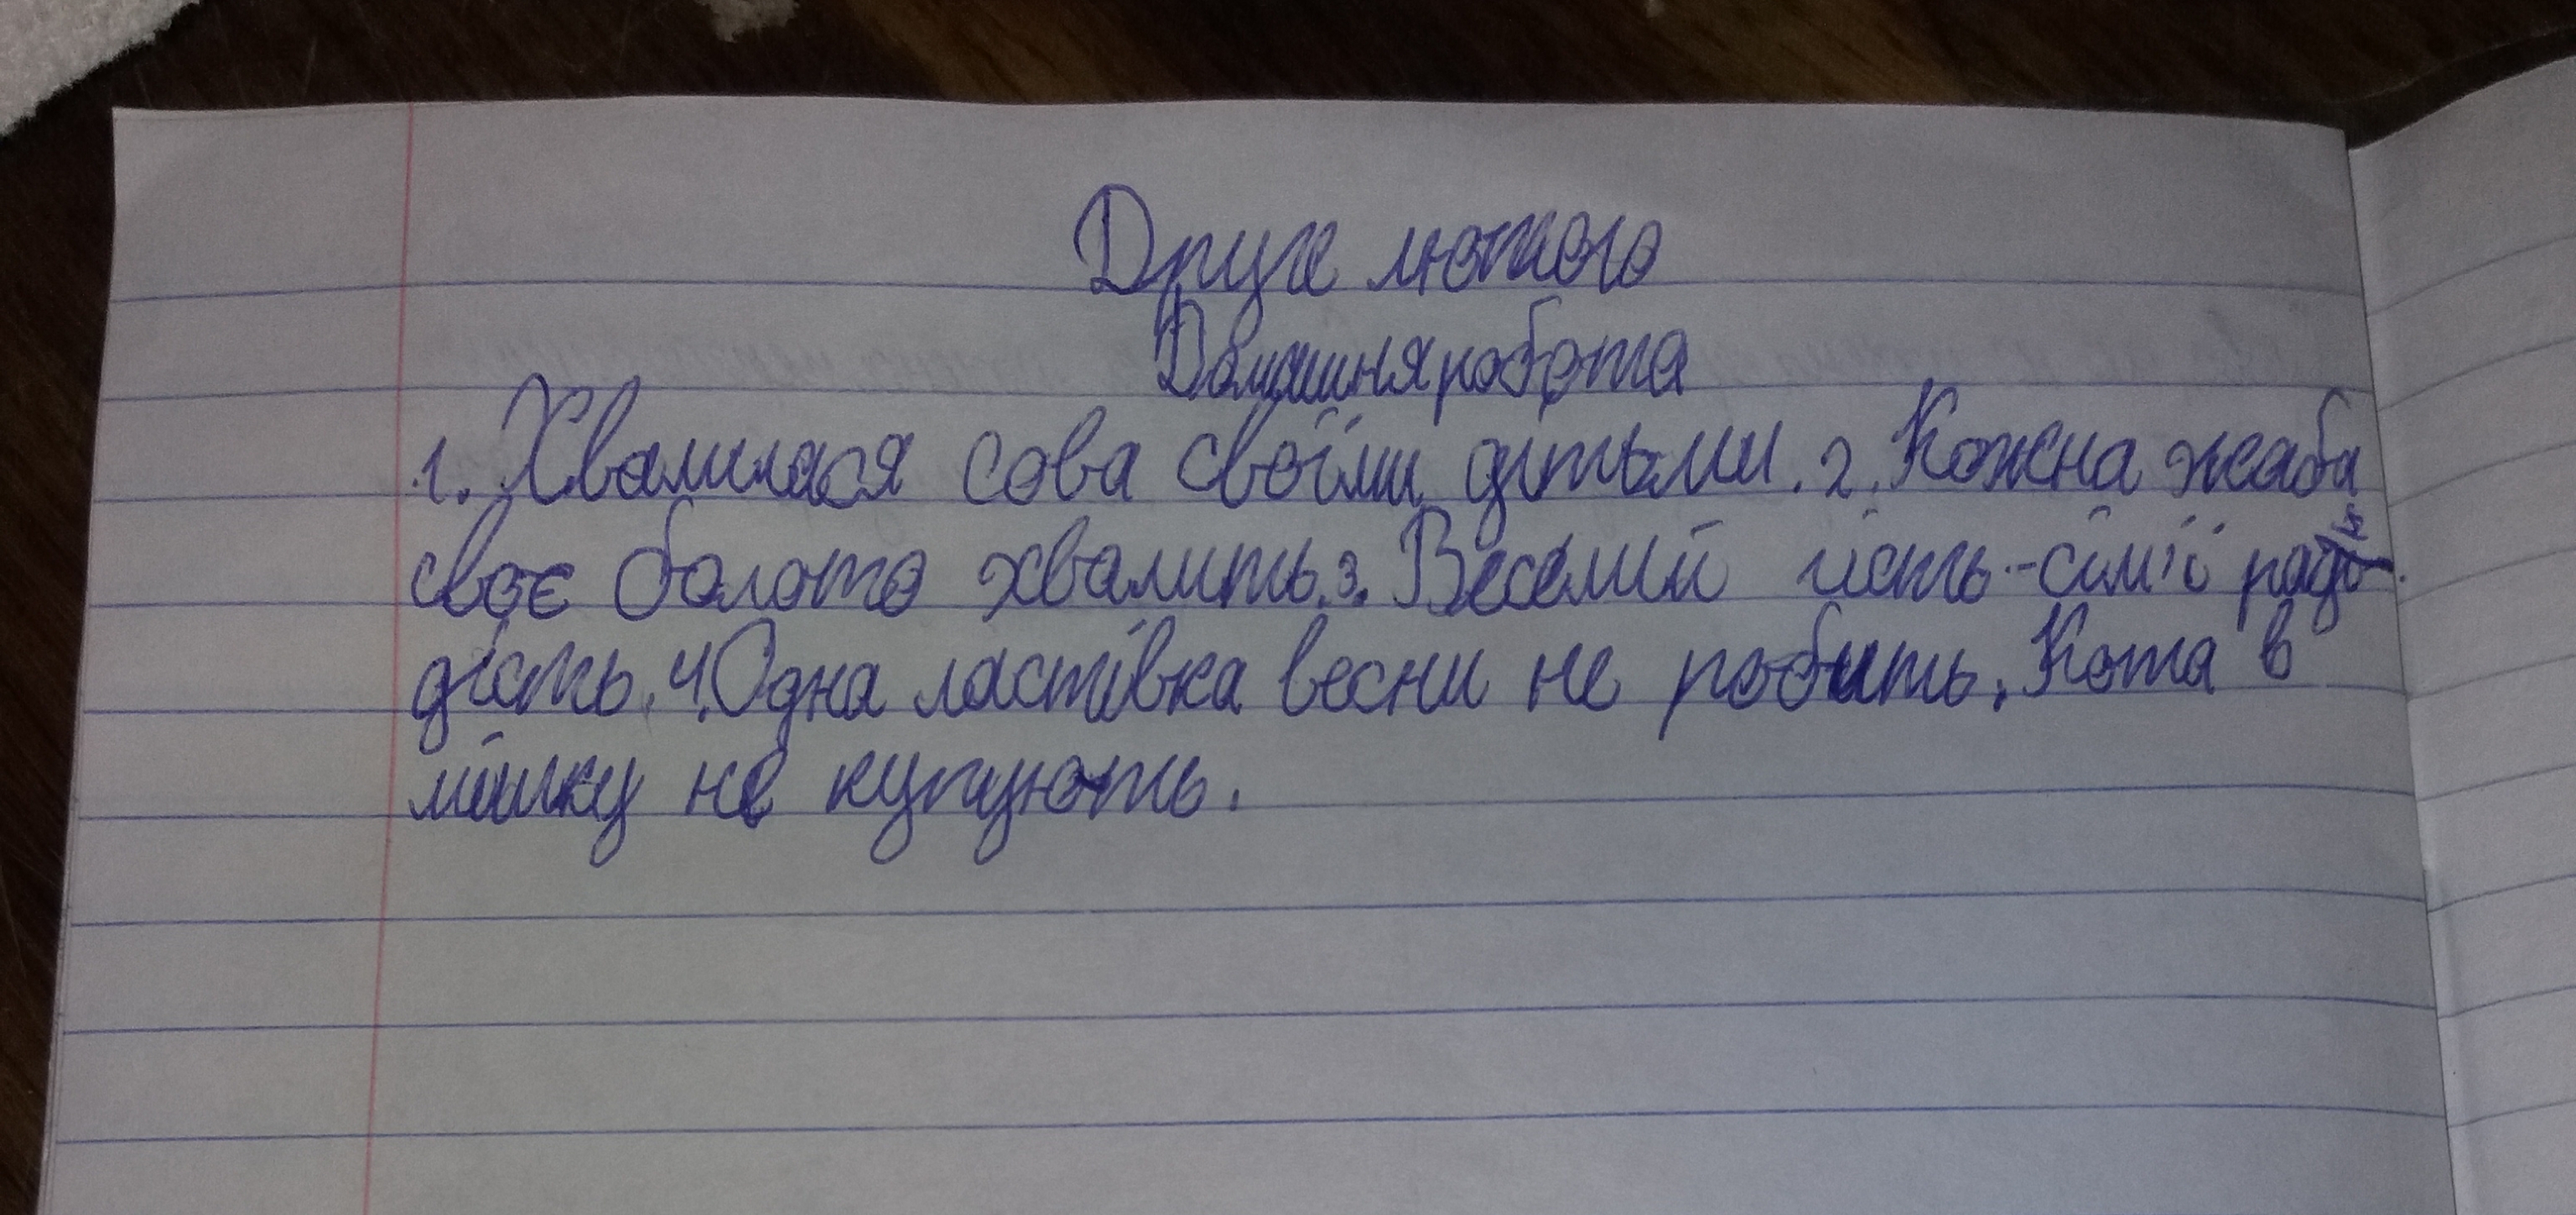 Друге лютого
Домашня робота
1. Хвалилася сова своїми дітьми. 2. Кожна жаба
своє болото хвалить. 3. Веселий гість - сім'ї ра
дість. 4. Одна ластівка весни не робить. Кота в
мішку не купують.